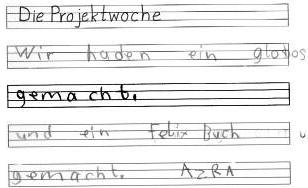 Die Projektwoche
Wir haden ein glotos
gemacht.
und ein Felix Buch
gemacht. AZRA